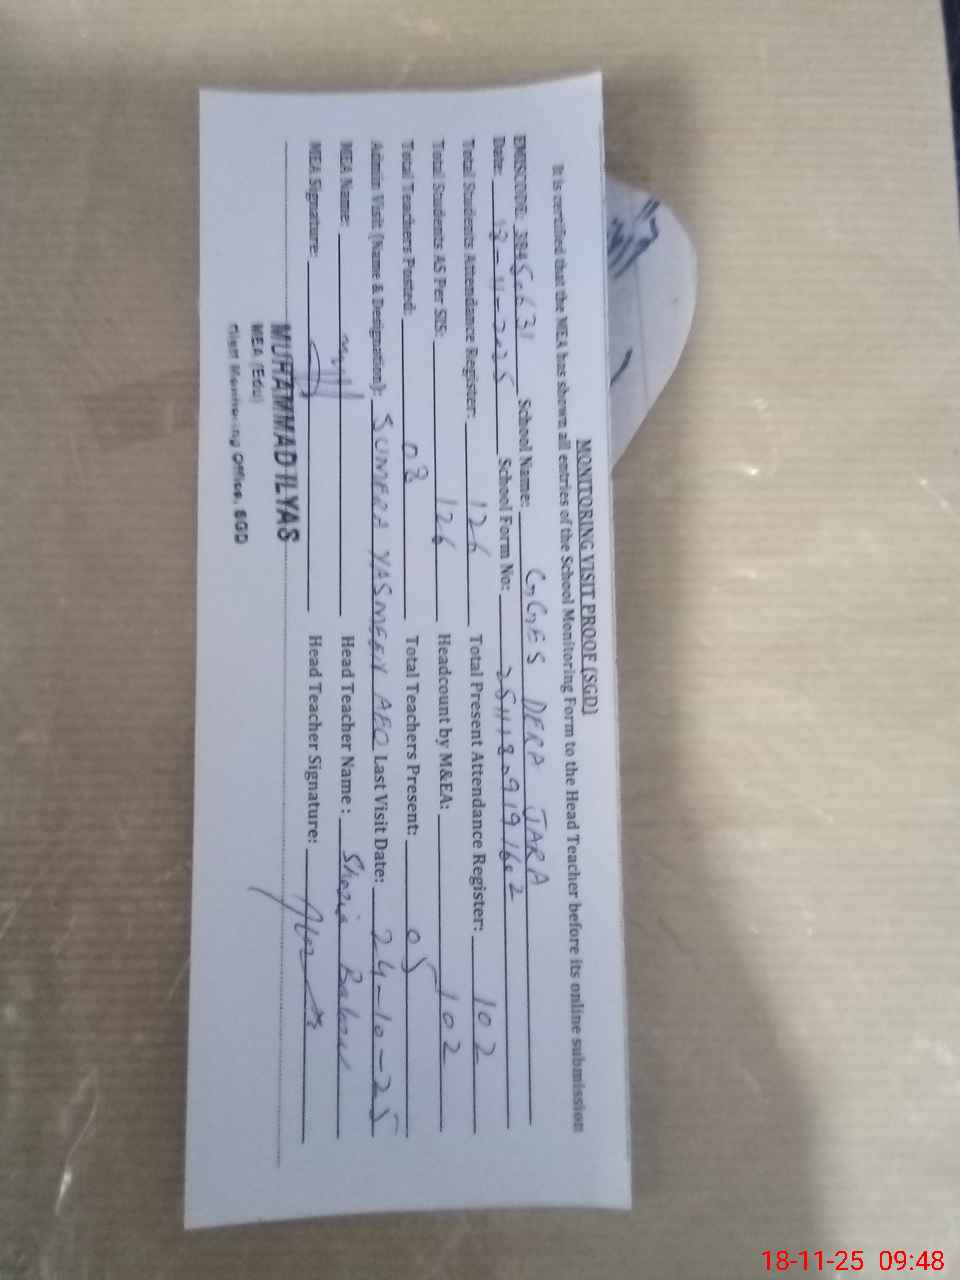 MONITORING VISIT PROOF (SGD)
It is certified that the MEA has shown all entries of the School Monitoring Form to the Head Teacher before its online submission
EMISCODE: 38450631 School Name: GGES DERA JARA
Date: 18-11-2025 School Form No: 2511180919162
Total Students Attendance Register: 126 Total Present Attendance Register: 102
Total Students AS Per SIS: 126 Headcount by M&EA: 102
Total Teachers Posted: 08 Total Teachers Present: 05
Admin Visit (Name & Designation): SUMERA YASMEEN AEO Last Visit Date: 24-10-25
MEA Name: Head Teacher Name: Shazia
MEA Signature: Head Teacher Signature:
MUHAMMAD ILYAS
MEA (Edu)
Monitoring Office, SGD
18-11-25 09:48